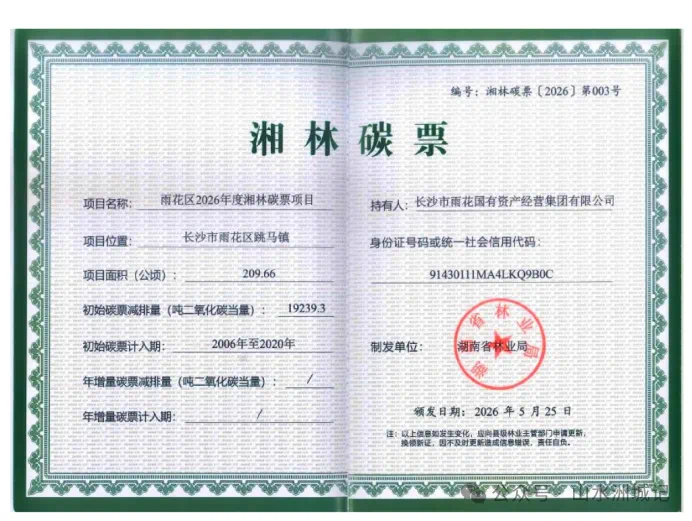 编号：湘林碳票〔2026〕第003号
湘林碳票
项目名称：雨花区2026年度湘林碳票项目
项目位置：长沙市雨花区跳马镇
项目面积（公顷）：209.66
初始碳票减排量（吨二氧化碳当量）：19239.3
初始碳票计入期：2006年至2020年
年增量碳票减排量（吨二氧化碳当量）：/
年增量碳票计入期：/
持有人：长沙市雨花国有资产经营集团有限公司
身份证号码或统一社会信用代码：
91430111MA4LKQ9B0C
制发单位：湖南省林业局
湖南省林业局
颁发日期：2026年5月25日
注：以上信息如发生变化，应向县级林业主管部门申请更新，
换领新证，因不及时更新造成信息错误，责任自负。
公众号·山水洲城记